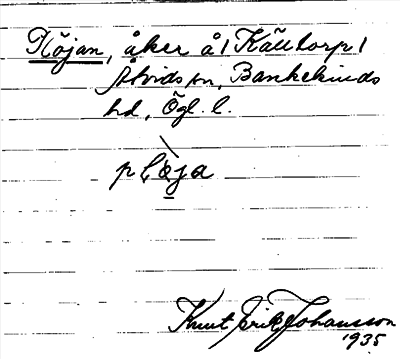 Plöjan, åker å 1 Källtorp 1
Åtvids sn, Bankekinds
hd, Ögl. l.
plöja
Knut Erik Johansson
1935